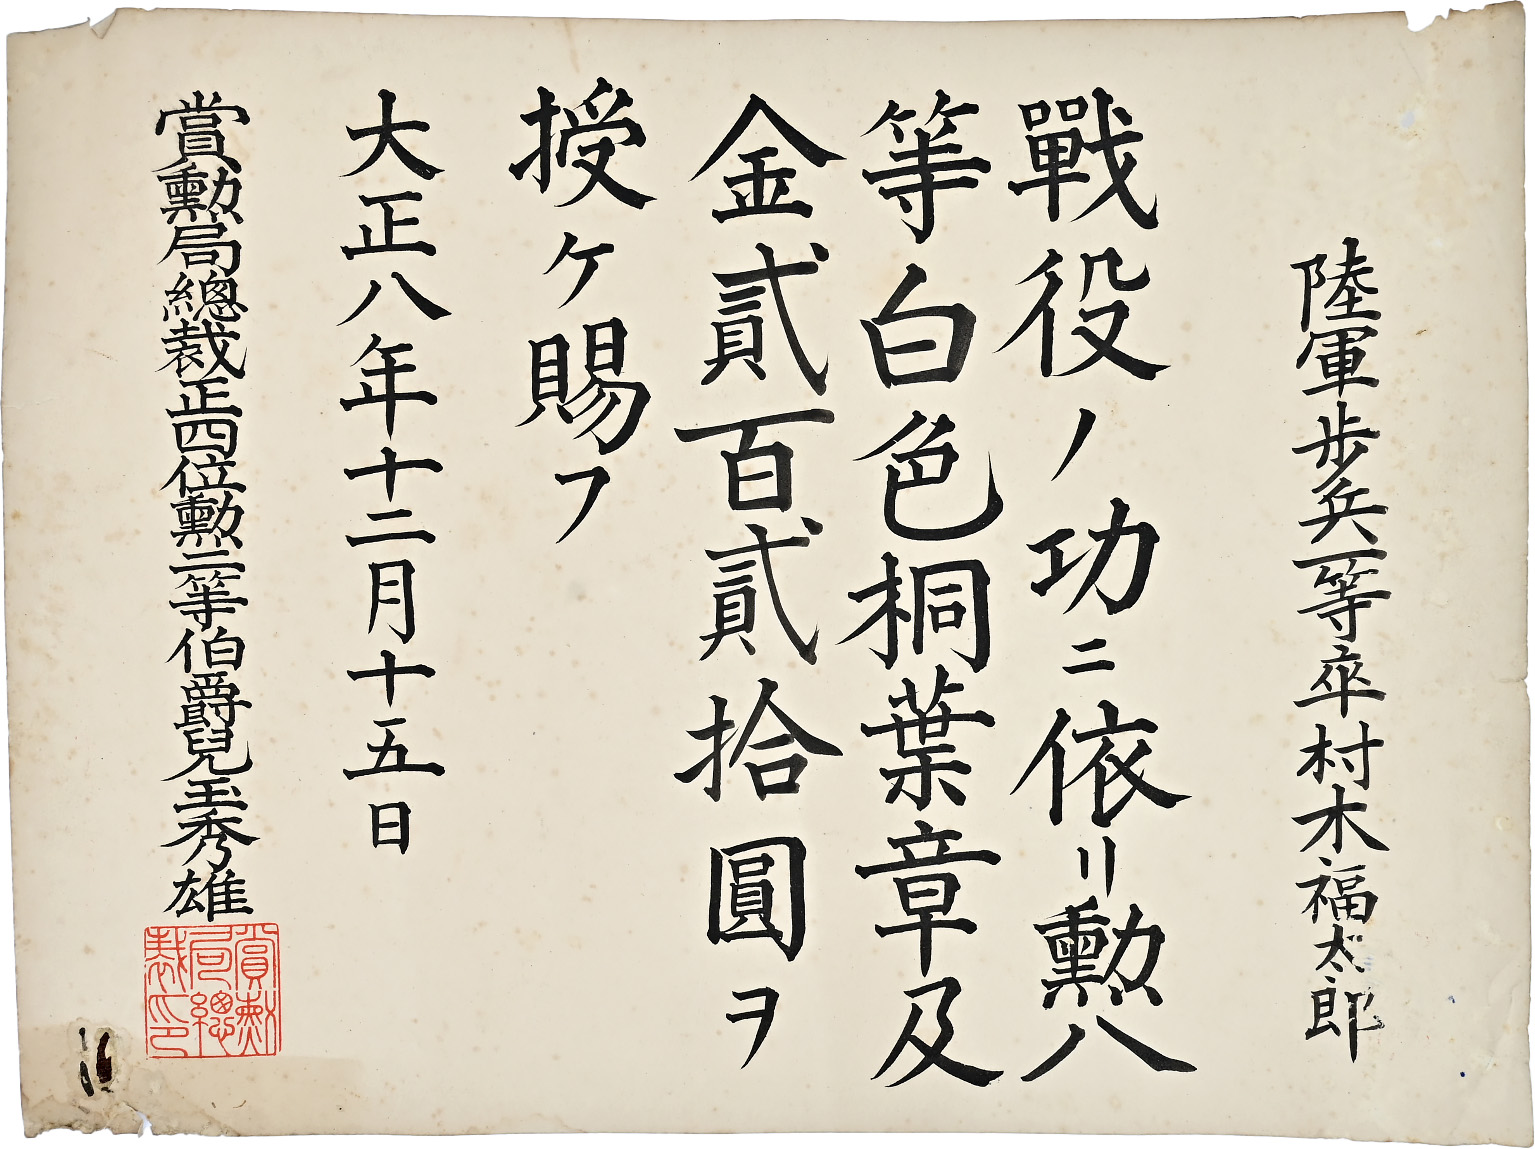 陸軍歩兵一等卒村木福太郎
戰役ノ功ニ依リ勲八
等白色桐葉章及
金貳百貳拾圓ヲ
授ケ賜フ
大正八年十二月十五日
賞勲局總裁正四位勲二等伯爵兒玉秀雄
賞勲
局總
裁印